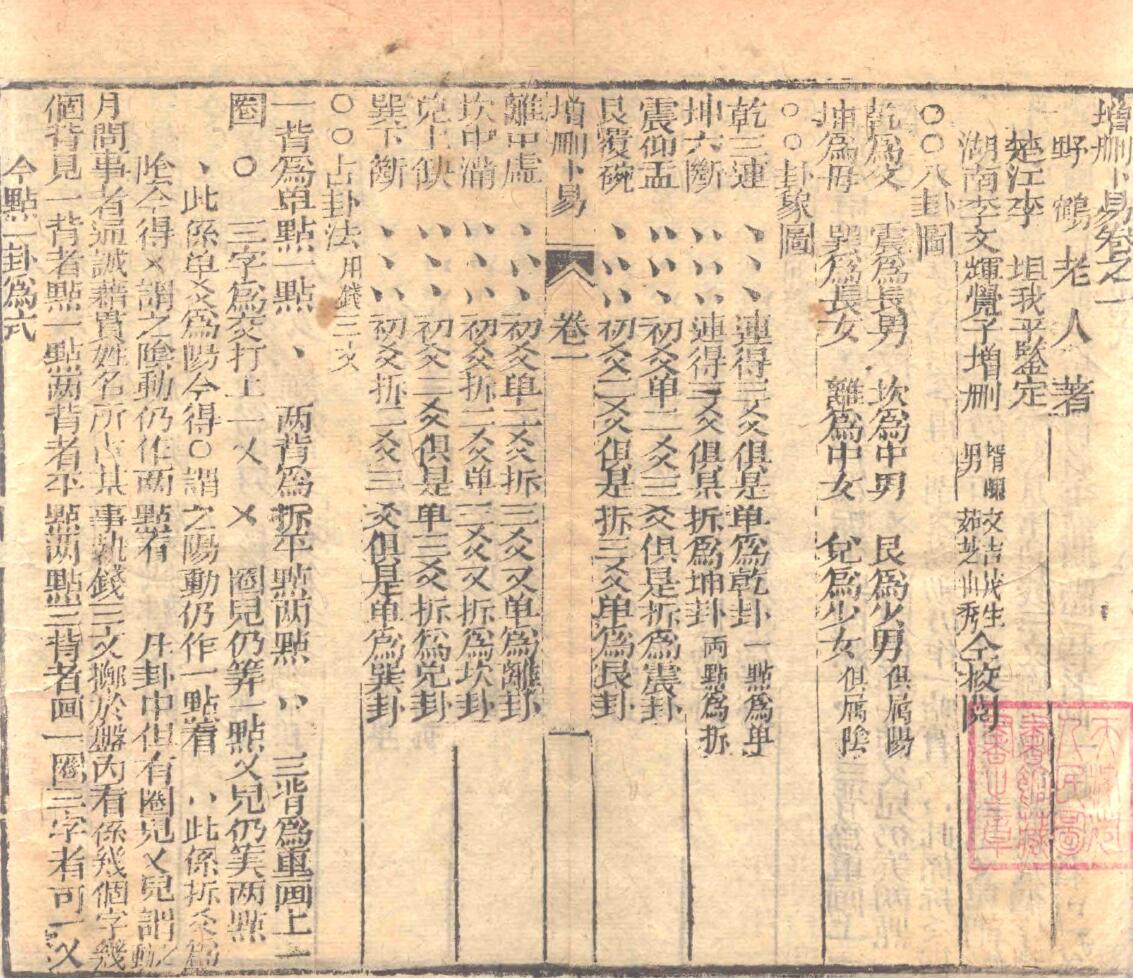 增删卜易卷之一
野鶴老人著
楚江李 坦我平鑒定
湖南李文輝覺子增删 壻 文吉茂生 男 茹芝山秀 仝挍閱
○○八卦圖
乾爲父 震爲長男 坎爲中男 艮爲少男 俱属陽
坤爲母 巽爲長女 離爲中女 兌爲少女 俱属陰
○○卦象圖
乾三連 丶丶丶 連得三爻俱是单爲乾卦 一點爲单
坤六斷 丷丷丷 連得三爻俱是拆爲坤卦 両點爲拆
震仰盂 丷丷丶 初爻单二爻三爻俱是拆爲震卦
艮覆碗 丶丷丷 初爻二爻俱是拆三爻单爲艮卦
增删卜易 卷一
離中虛 丶丷丶 初爻单二爻拆三爻又单爲離卦
坎中满 丷丶丷 初爻拆二爻单三爻又拆爲坎卦
兌上缺 丷丶丶 初爻二爻俱是单三爻拆爲兌卦
巽下斷 丶丶丷 初爻拆二爻三爻俱是单爲巽卦
○○占卦法 用錢三文
一背爲单點一點 丶 両背爲拆平點両點 丷 三背爲重画上一
圈 ○ 三字爲交打上一乂 乂 圈兒仍筭一點乂兒仍筭両點
丶此係单爻爲陽今得○謂之陽動仍作一點看 丷此係拆爻爲
陰今得乂謂之陰動仍作両點看 凡卦中但有圈兒乂兒謂之動
月問事者通誠籍貫姓名所占某事執錢三文擲於盤内看係幾個字幾
個背見一背者點一點両背者平點両點三背者画一圈三字者可一乂
今點一卦爲式